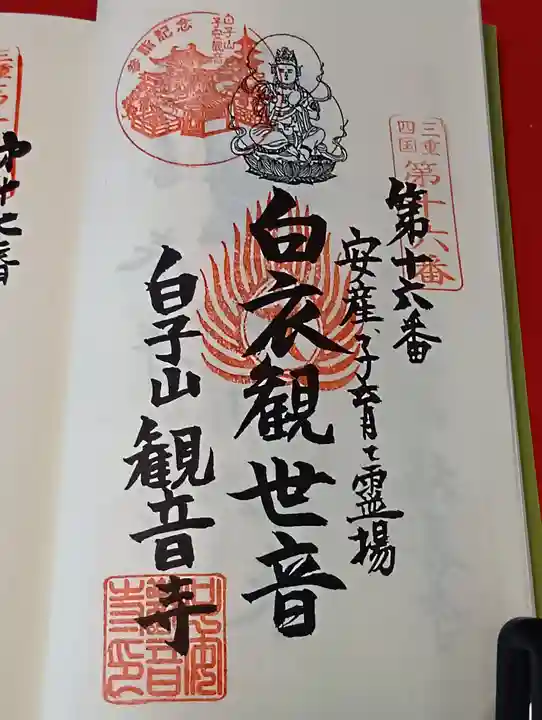 三重
四国
第十六番
第十六番
安産、子育て霊場
白衣観世音
白子山観音寺
参詣記念
白子山
子安観音
三重
第十七番